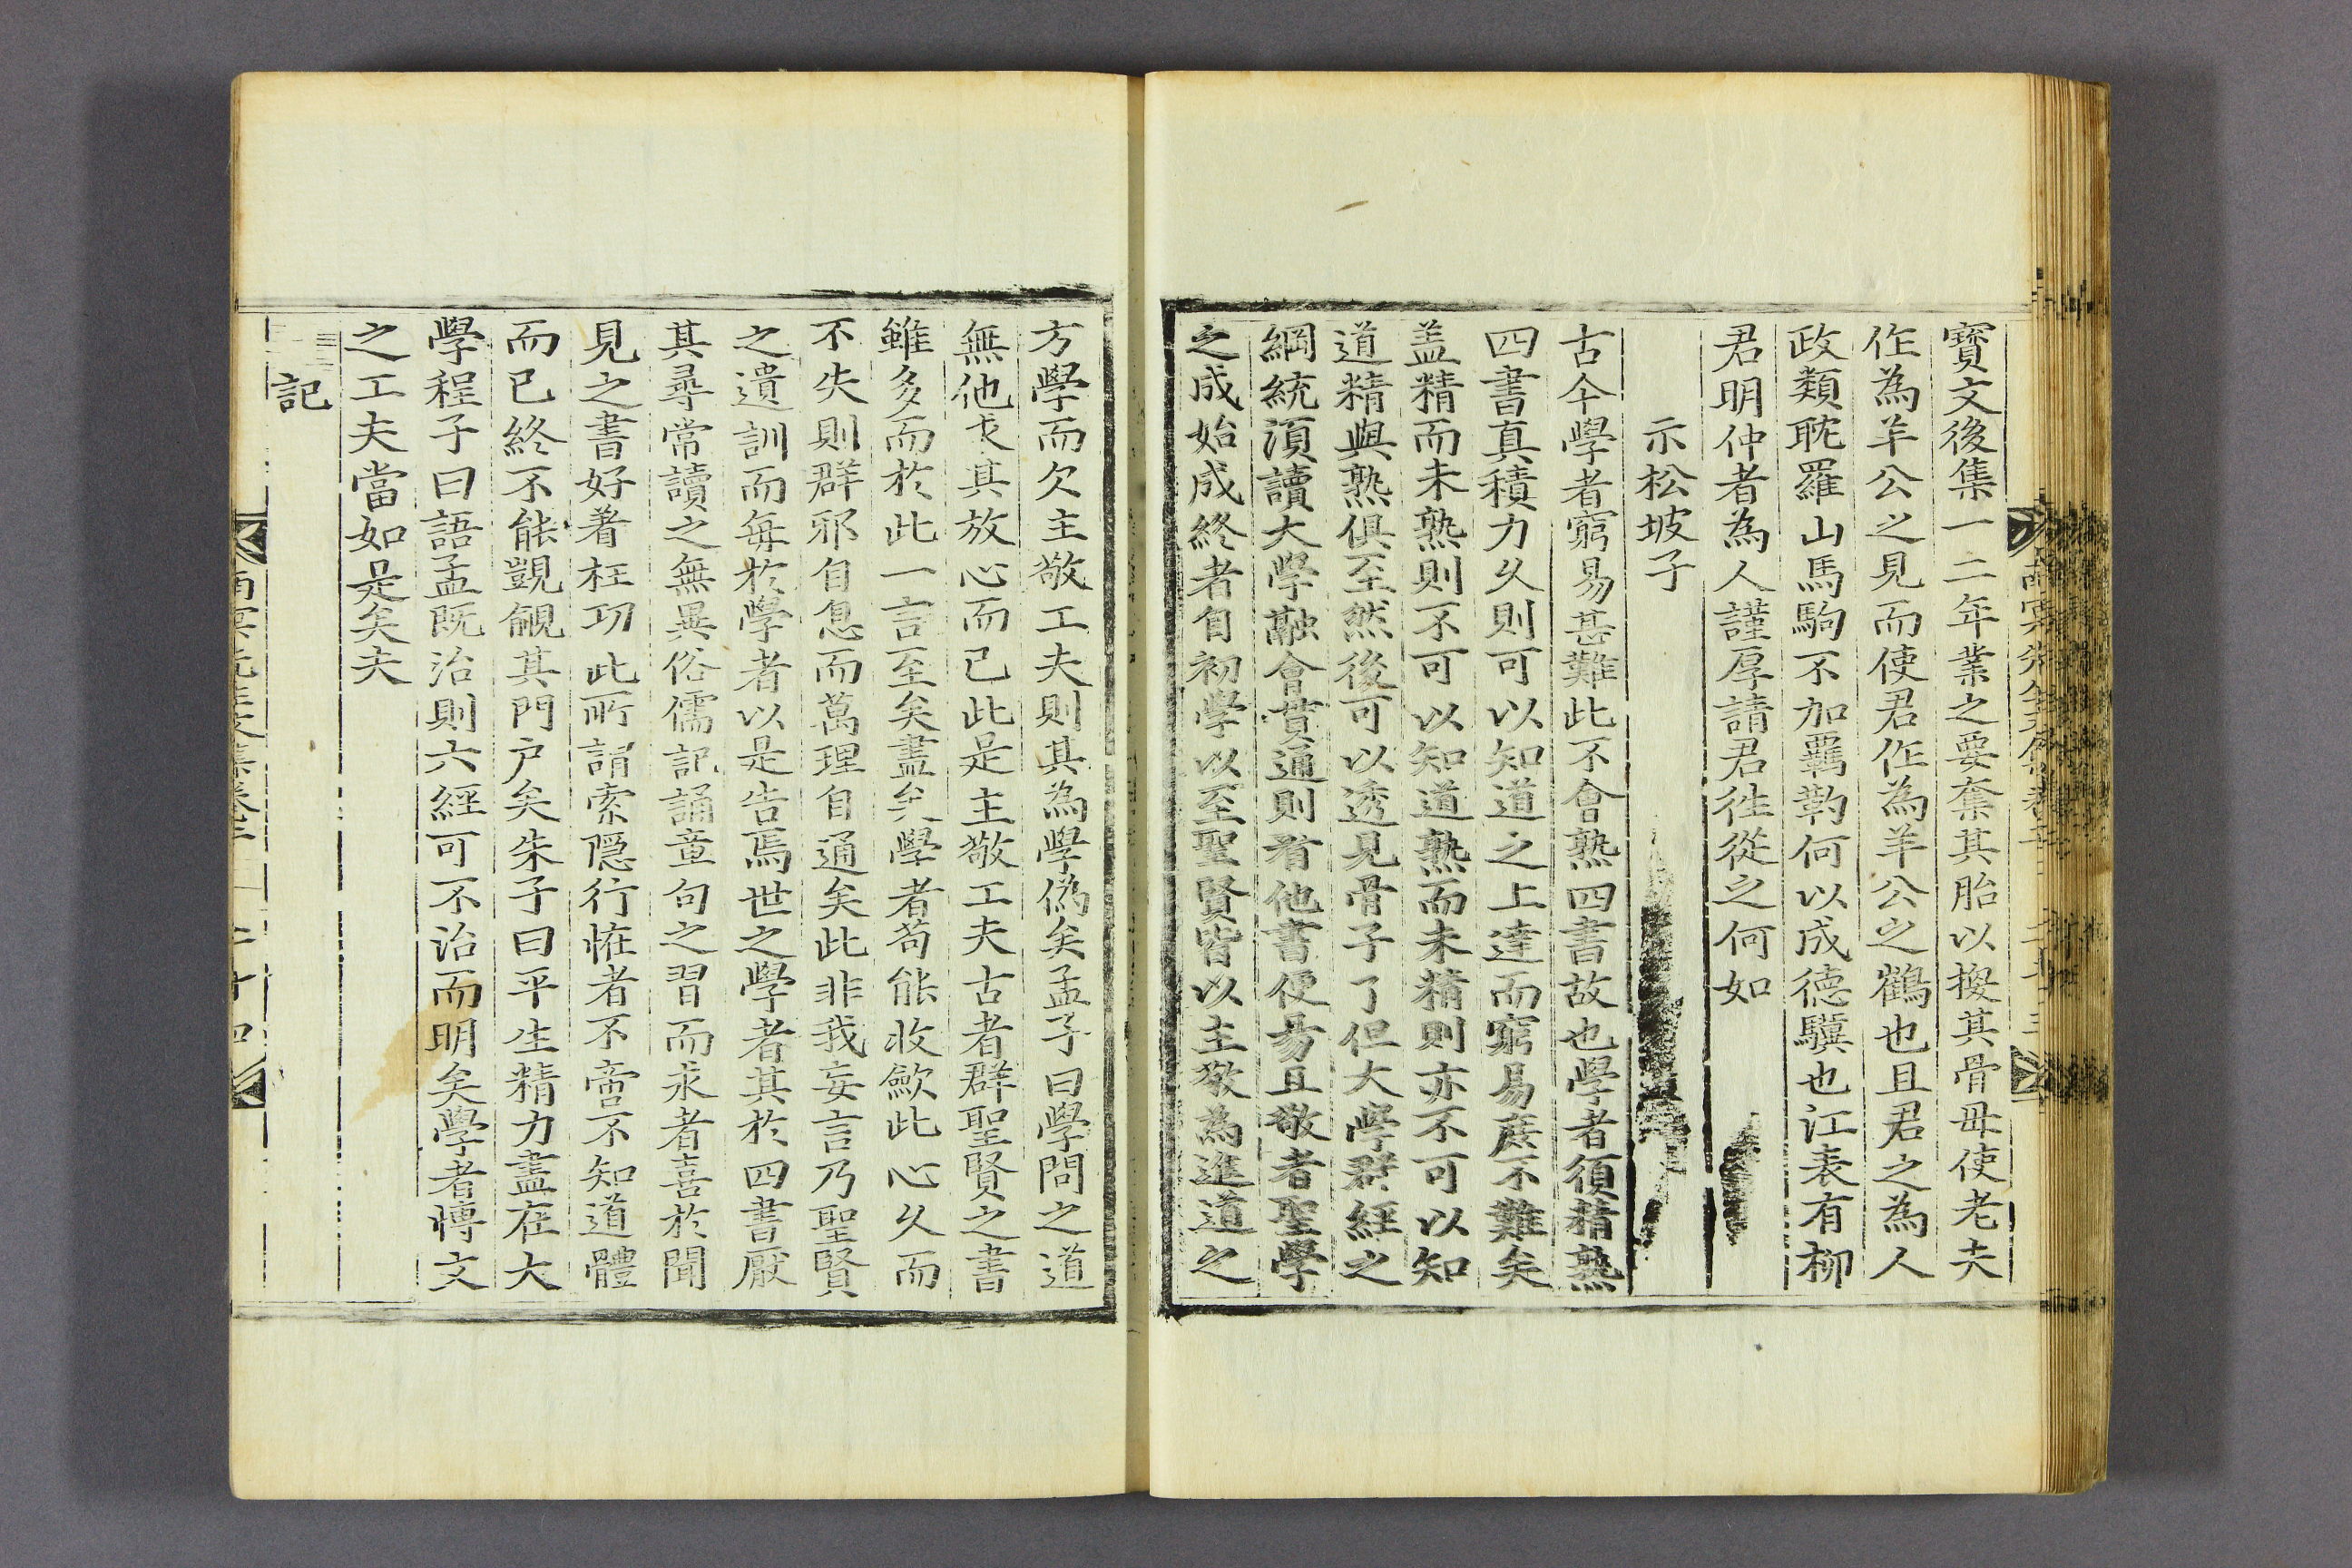 寶文後集一二年業之要奪其胎以換其骨毋使老夫
作為羊公之見而使君作為羊公之鶴也且君之為人
政類耽羅山馬駒不加羈靮何以成德驥也江表有柳
君明仲者為人謹厚請君徃從之何如
示松坡子
古今學者窮易甚難此不會熟四書故也學者須精熟
四書真積力久則可以知道之上達而窮易庶不難矣
盖精而未熟則不可以知道熟而未精則亦不可以知
道精與熟俱至然後可以透見骨子了但大學群經之
綱統須讀大學融會貫通則看他書便易且敬者聖學
之成始成終者自初學以至聖賢皆以主敬為進道之
方學而欠主敬工夫則其為學僞矣孟子曰學問之道
無他求其放心而已此是主敬工夫古者群聖賢之書
雖多而於此一言至矣盡矣學者苟能收歛此心久而
不失則群邪自息而萬理自通矣此非我妄言乃聖賢
之遺訓而每於學者以是告焉世之學者其於四書厭
其尋常讀之無異俗儒記誦章句之習而求者喜於聞
見之書好着枉功此所謂索隱行恠者不啻不知道體
而已終不能覬覦其門户矣朱子曰平生精力盡在大
學程子曰語孟既治則六經可不治而明矣學者博文
之工夫當如是矣夫
記
南冥先生文集卷二 二十四